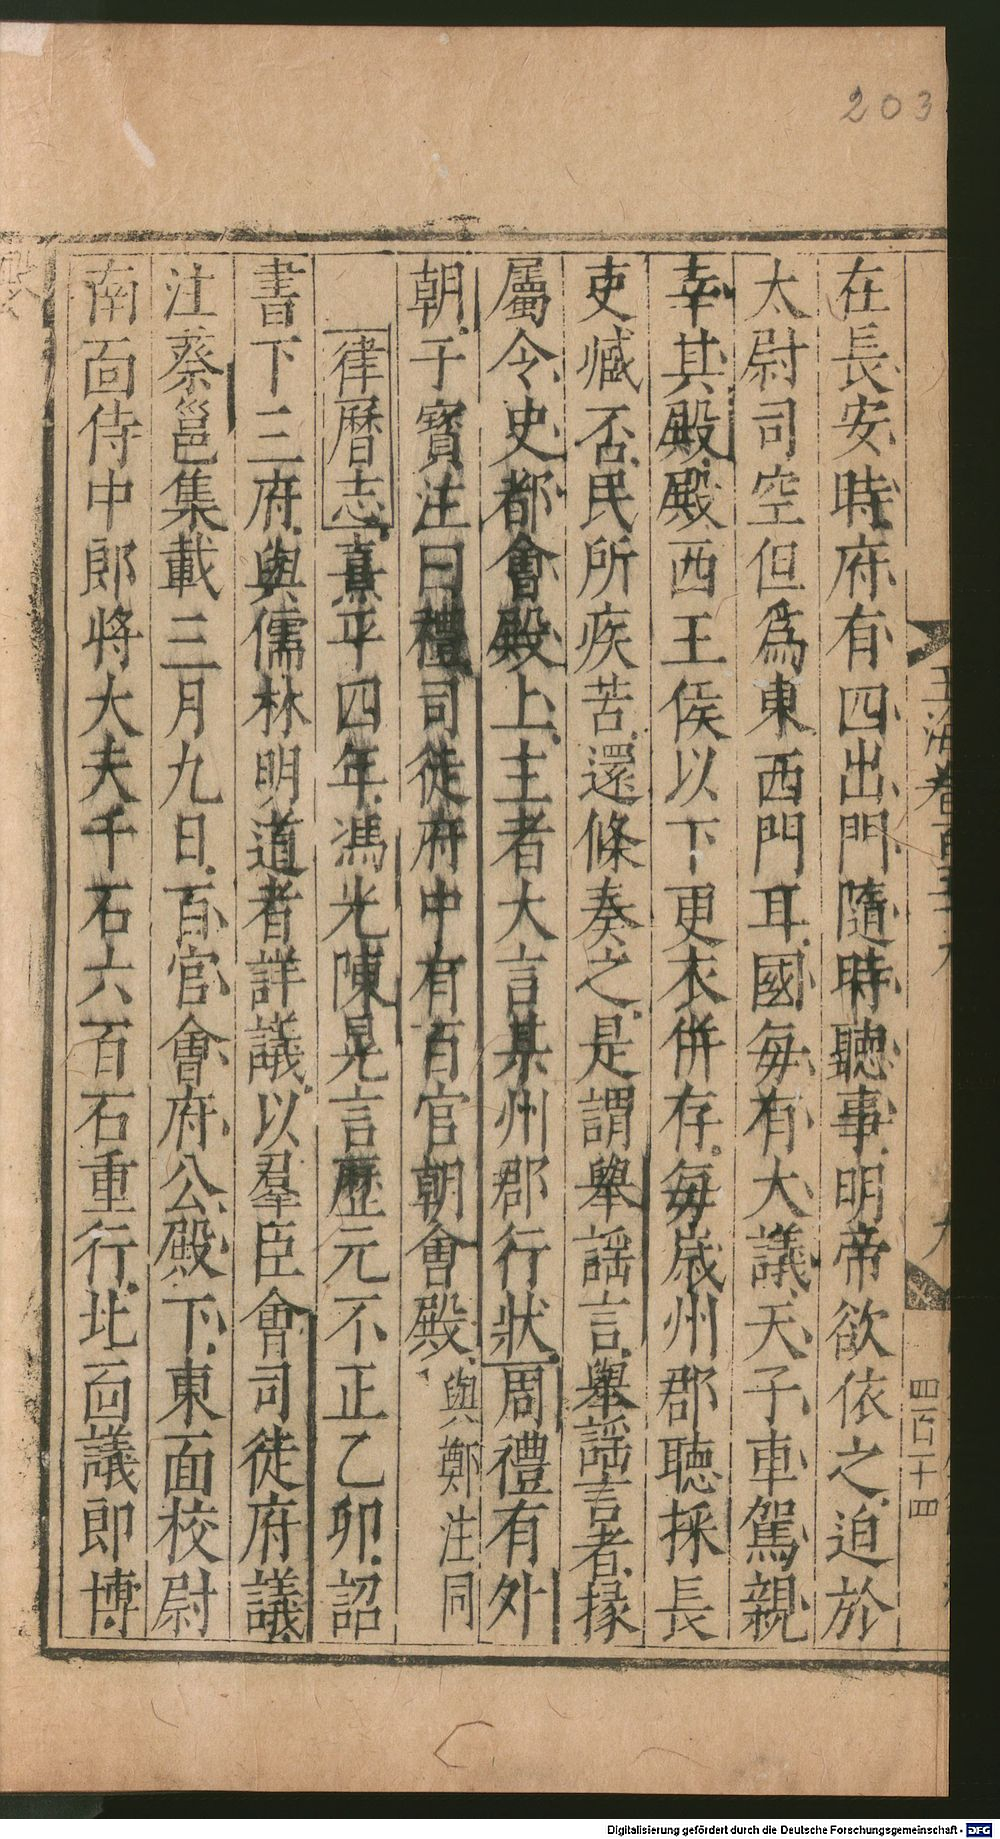 203
在長安時府有四出門隨時聽事明帝欲依之迫於
太尉司空但爲東西門耳國每有大議天子車駕親
幸其殿殿西王侯以下更衣併存每歲州郡聽採長
吏臧否民所疾苦還條奏之是謂舉謡言舉謡言者掾
屬令史都會殿上主者大言某州郡行狀周禮有外
朝于寳注曰禮司徒府中有百官朝會殿與鄭注同
律曆志熹平四年馮光陳晃言歷元不正乙卯詔
書下三府與儒林明道者詳議以羣臣會司徒府議
注蔡邕集載三月九日百官會府公殿下東面校尉
南面侍中郎將大夫千石六百石重行北面議郎博
玉海卷百五十九
九
四百二十四
Digitalisierung gefördert durch die Deutsche Forschungsgemeinschaft - DFG